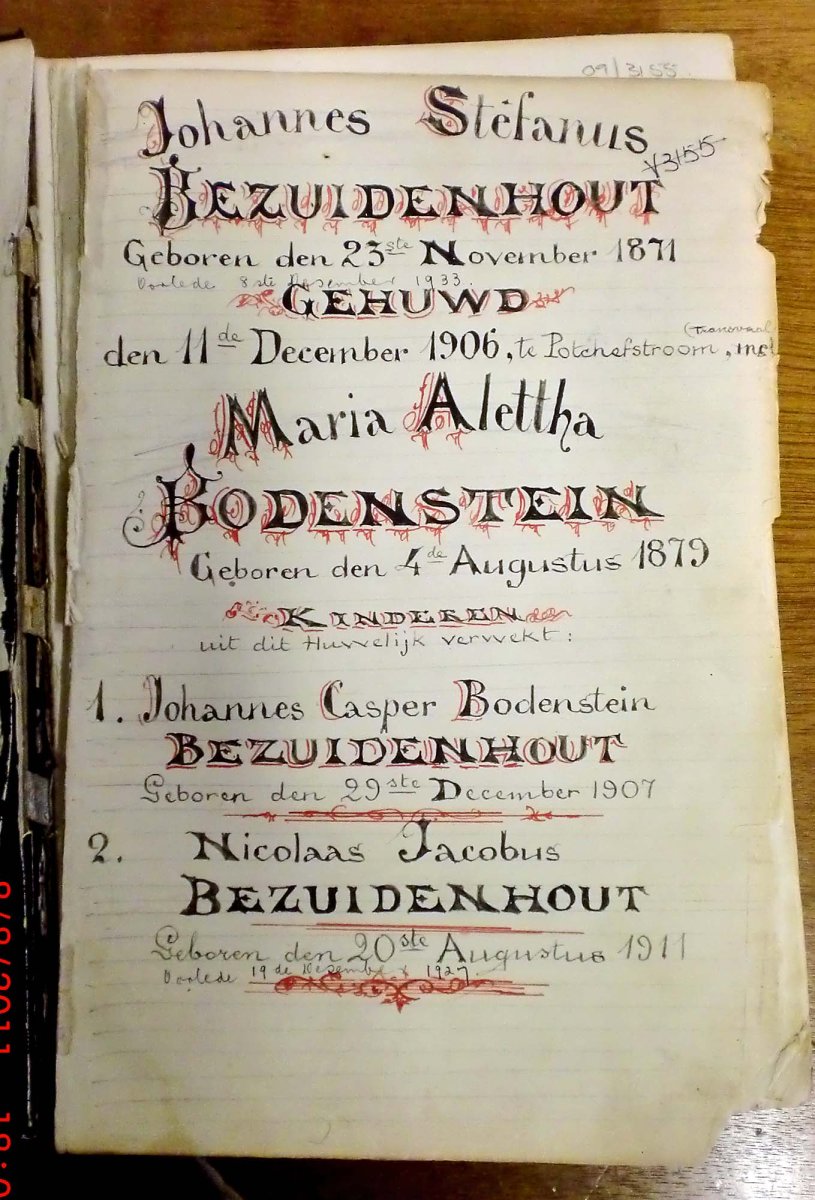 09/3155
Johannes Stéfanus
V3155
BEZUIDENHOUT
Geboren den 23ste November 1871
Oorlede 8ste Desember 1933.
GEHUWD
(Transvaal
den 11de December 1906, te Potchefstroom, met
Maria Alettha
BODENSTEIN
Geboren den 4de Augustus 1879
KINDEREN
uit dit Huwelijk verwekt:
1. Johannes Casper Bodenstein
BEZUIDENHOUT
Geboren den 29ste December 1907
2. Nicolaas Jacobus
BEZUIDENHOUT
Geboren den 20ste Augustus 1911
Oorlede 19de Desember 1927.